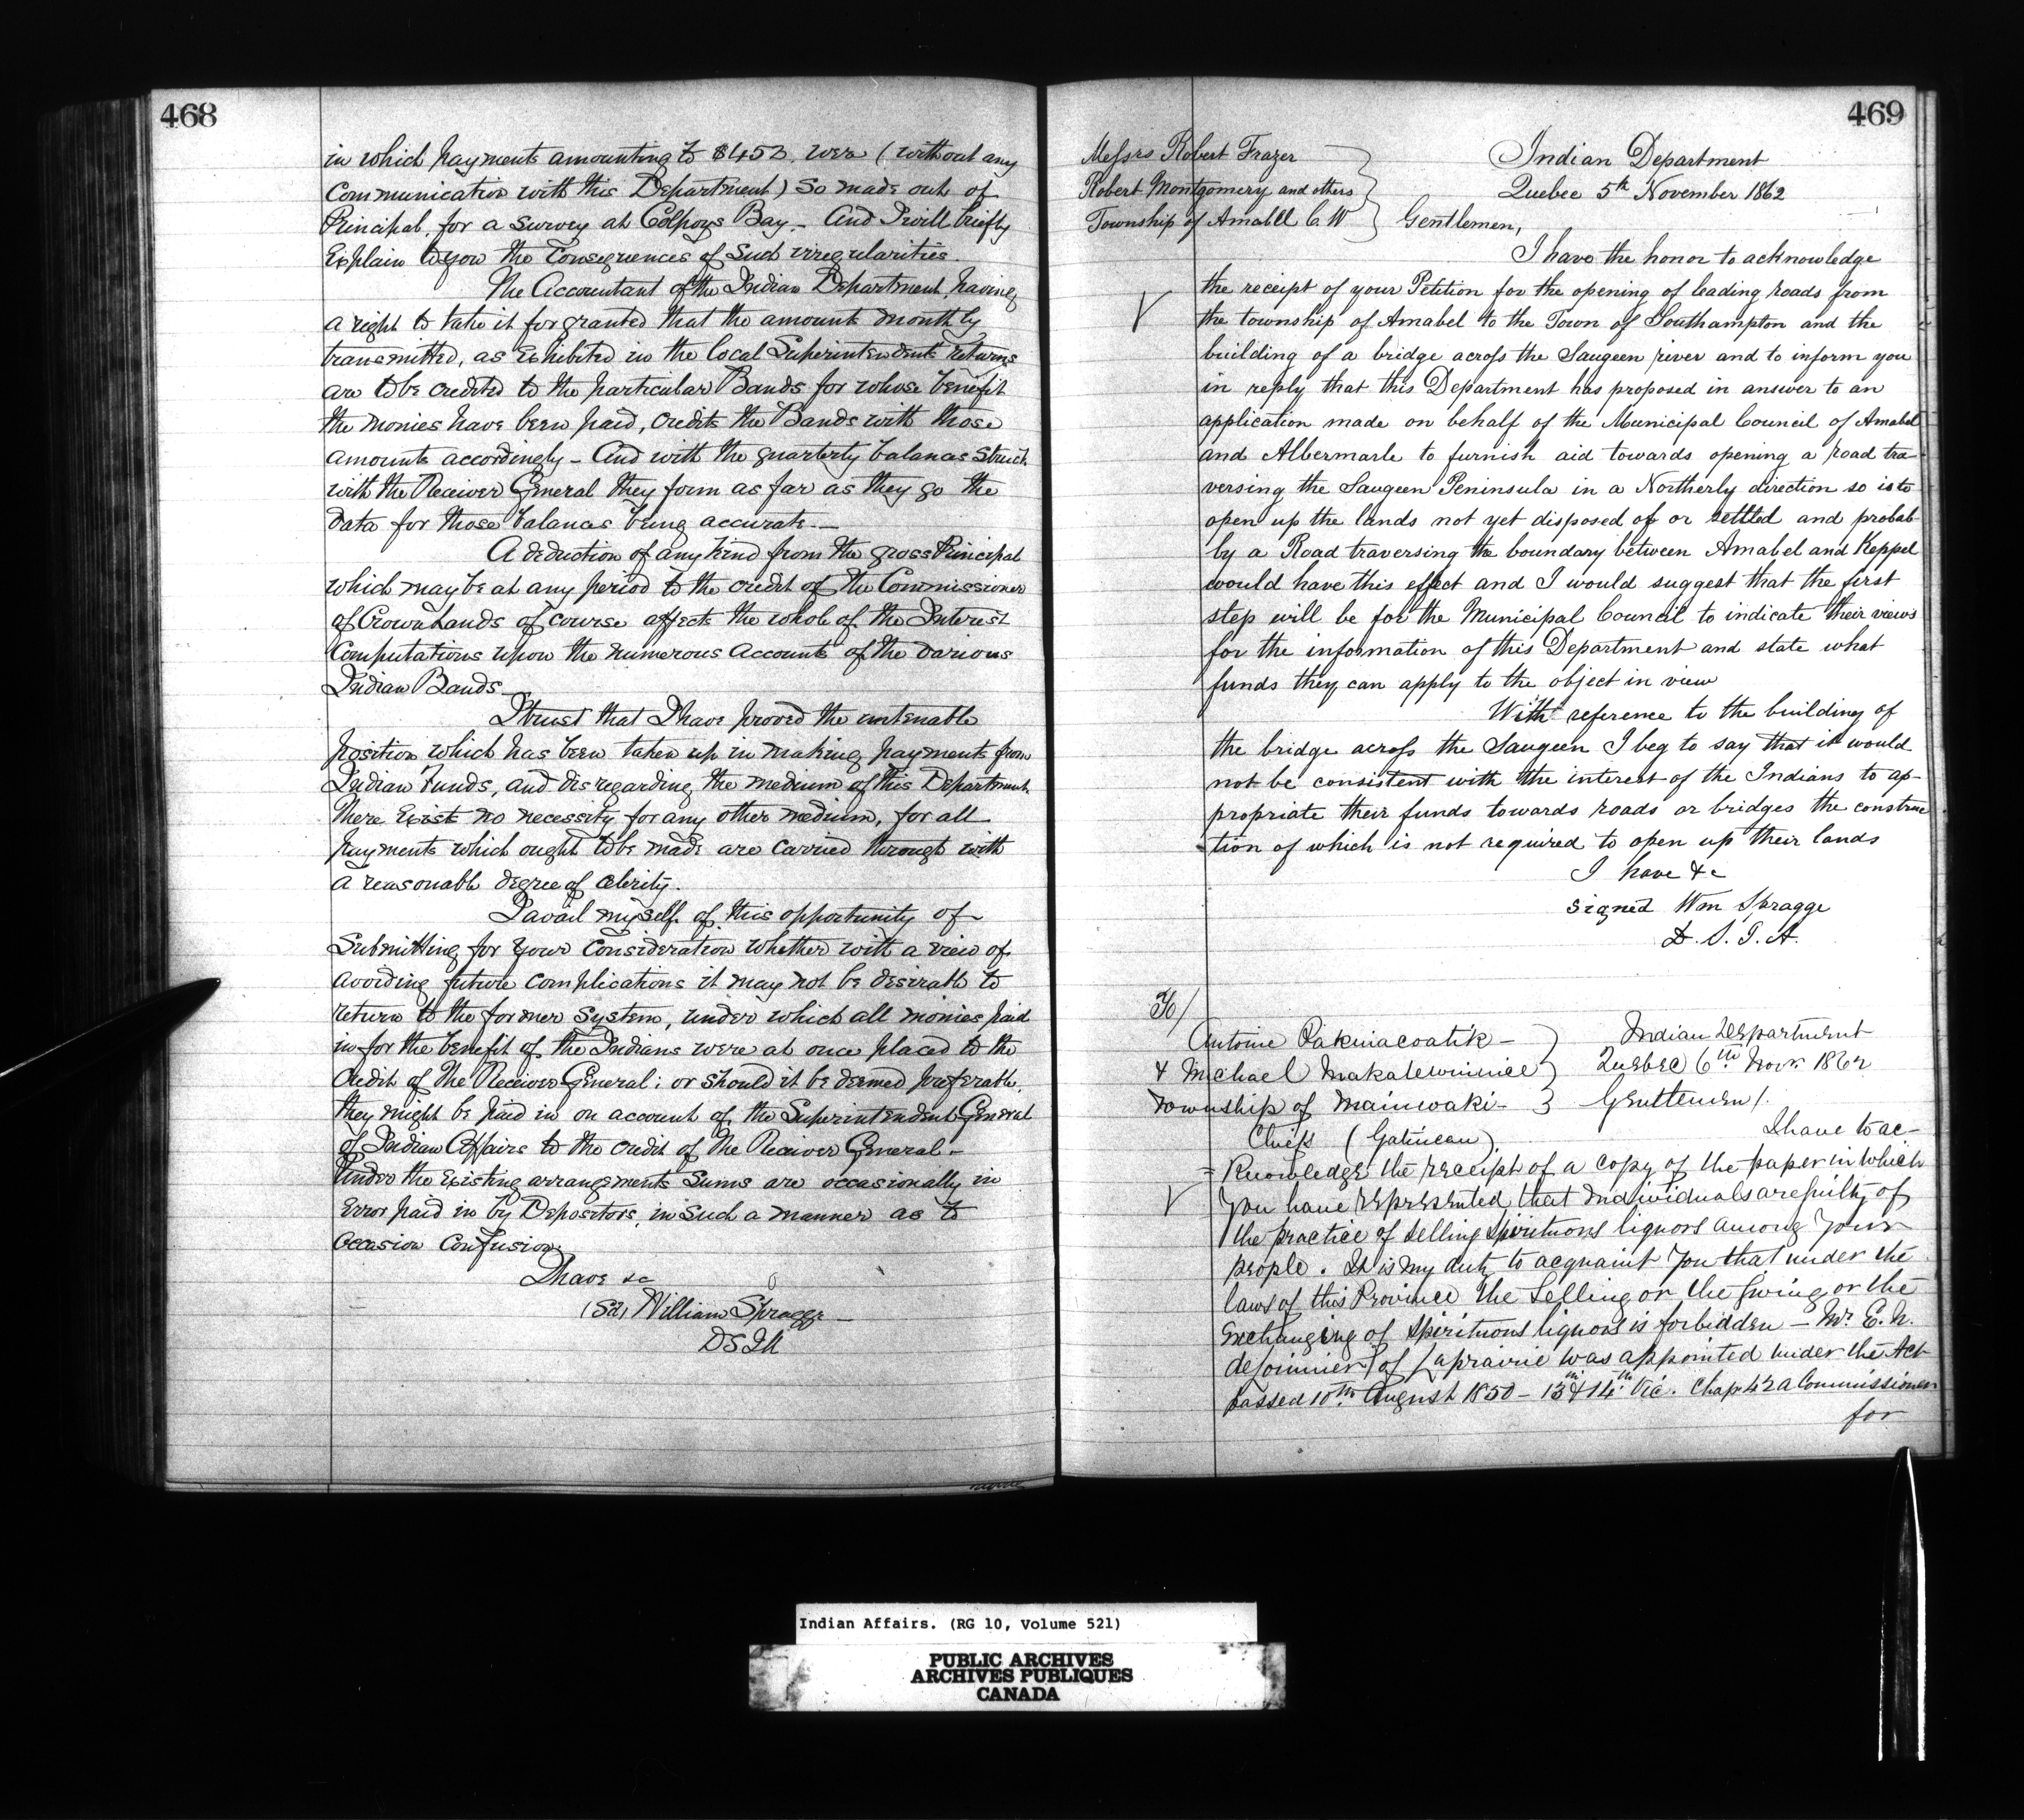 468
in which payments amounting to $453. were (without any
Communication with this Department) so made out of
Principal, for a Survey at Colpoys Bay. – And I will briefly
Explain to you the Consequences of such irregularities.
The Accountant of the Indian Department, having
a right to take it for granted that the amounts monthly
transmitted, as Exhibited in the local Superintendents returns
are to be credited to the particular Bands for whose benefit
the monies have been paid, credits the Bands with those
amounts accordingly – And with the quarterly balances struck
with the Receiver General they form as far as they go the
data for those balances being accurate. –
A deduction of any kind from the gross Principal
which may be at any period to the credit of the Commissioner
of Crown Lands of course affects the whole of the Interest
Computations upon the numerous Accounts of the various
Indian Bands –
I trust that I have proved the untenable
position which has been taken up in making payments from
Indian Funds, and disregarding the medium of this Department.
There Exist no necessity for any other medium, for all
payments which ought to be made are carried through with
a reasonable degree of celerity.
I avail myself of this opportunity of
Submitting for your Consideration whether with a view of
avoiding future complications it may not be desirable to
return to the former System, under which all monies paid
in for the benefit of the Indians were at once placed to the
Credit of the Receiver General; or should it be deemed preferable,
they might be paid in on account of the Superintendent General
of Indian Affairs to the credit of the Receiver General –
Under the Existing arrangements Sums are occasionally in
Error paid in by Depositors, in such a manner as to
Occasion Confusion.
I have &c
(Sd) William Spragge
DSIA
469
Messrs Robert Frazer
Robert Montgomery and others
Township of Amabll C W
Indian Department
Quebec 5th November 1862
Gentlemen,
I have the honor to acknowledge
the receipt of your Petition for the opening of leading roads from
the township of Amabel to the Town of Southampton and the
building of a bridge across the Saugeen river and to inform you
in reply that this Department has proposed in answer to an
application made on behalf of the Municipal Council of Amabel
and Albermarle to furnish aid towards opening a road tra-
versing the Saugeen Peninsula in a Northerly direction so is to
open up the lands not yet disposed of or settled and probab-
by a Road traversing the boundary between Amabel and Keppel
would have this effect and I would suggest that the first
step will be for the Municipal Council to indicate their views
for the information of this Department and state what
funds they can apply to the object in view
With reference to the building of
the bridge across the Saugeen I beg to say that it would
not be consistent with the interest of the Indians to ap-
propriate their funds towards roads or bridges the construc
tion of which is not required to open up their lands
I have &c
signed Wm Spragge
D. S. I. A.
To/
Antoine Pakinacoatik –
& Michael Makatewinnice
Township of Maniwaki –
Chiefs (Gatineau)
Indian Department
Quebec 6th Novr 1862
Gentlemen /.
I have to ac-
= Knowledge the receipt of a copy of the paper in which
you have represented that individuals are guilty of
the practice of selling Spirituous liquors among your
people. It is my duty to acquaint you that under the
laws of this Province the Selling or the giving or the
Exchanging of Spirituous liquors is forbidden – Mr. E. N.
deLorimier of Laprairie was appointed under the Act
passed 10th August 1850 – 13th & 14th Vic. Chap 42 a Commissioner
for
Indian Affairs. (RG 10, Volume 521)
PUBLIC ARCHIVES
ARCHIVES PUBLIQUES
CANADA